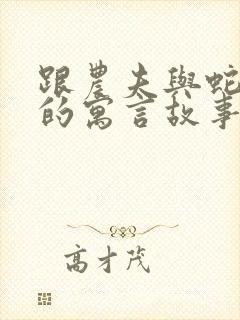 跟農夫與蛇
的寓言故事
高才茂